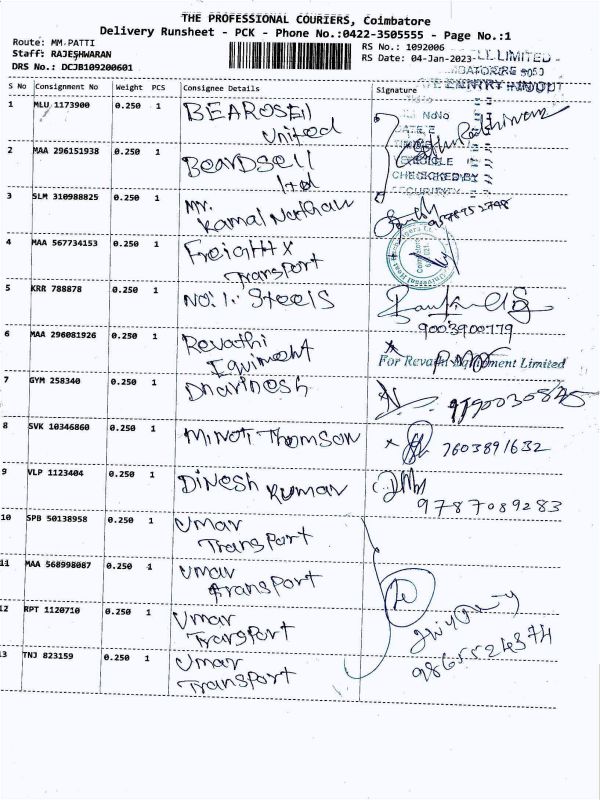 THE PROFESSIONAL COURIERS, Coimbatore
Delivery Runsheet - PCK - Phone No.:0422-3505555 - Page No.:1
Route: MM.PATTI
Staff: RAJESHWARAN
DRS No.: DCJB109200601
RS No.: 1092006
RS Date: 04-Jan-2023
S No Consignment No Weight PCS Consignee Details Signature
1 MLU 1173900 0.250 1 BEARDSEll
United
2 MAA 296151938 0.250 1 Beardsell
ltd
3 SLM 310988825 0.250 1 Mr.
Kamal Nathan
4 MAA 567734153 0.250 1 Freight x
Transport
5 KRR 788878 0.250 1 No.1. Steels
9003900779
6 MAA 296081926 0.250 1 Revathi
Equiment
For Revathi Equipment Limited
7 GYM 258340 0.250 1 Dharinesh
8 SVK 10346860 0.250 1 Minoti Thomson 7603891632
9 VLP 1123404 0.250 1 Dinesh Kumar
9787089283
10 SPB 50138958 0.250 1 Umar
Transport
11 MAA 568998087 0.250 1 Umar
Transport
12 RPT 1120710 0.250 1 Umar
Transport
13 TNJ 823159 0.250 1 Umar
Transport
9865524374